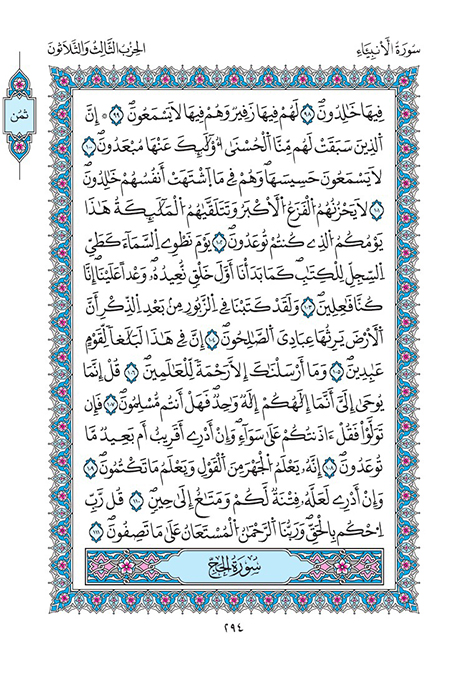 سُورَةُ الْأَنبِيَاءِ
الحِزْبُ الثَّالِثُ وَالثَّلَاثُونَ
ثُمُن
فِيهَا خَٰلِدُونَ ٩٨ لَهُمْ فِيهَا زَفِيرٌ وَهُمْ فِيهَا لَا يَسْمَعُونَ ٩٩ * إِنَّ
اَلذِينَ سَبَقَتْ لَهُم مِّنَّا اَلْحُسْنَىٰٓ أُوْلَٰٓئِكَ عَنْهَا مُبْعَدُونَ ١٠٠
لَا يَسْمَعُونَ حَسِيسَهَا وَهُمْ فِے مَا اَشْتَهَتَ اَنفُسُهُمْ خَٰلِدُونَ
١٠١ لَا يَحْزُنُهُمُ اُلْفَزَعُ اُلَاكْبَرُ وَتَتَلَقَّيٰهُمُ اُلْمَلَٰٓئِكَةُ هَٰذَا
يَوْمُكُمُ اُلذِے كُنتُمْ تُوعَدُونَ ١٠٢ يَوْمَ نَطْوِے اِلسَّمَآءَ كَطَيِّ
اِلسِّجِلِّ لِلْكِتَٰبِ كَمَا بَدَأْنَآ أَوَّلَ خَلْقٍ نُّعِيدُهُۥ وَعْداً عَلَيْنَآ إِنَّا
كُنَّا فَٰعِلِينَ ١٠٣ وَلَقَدْ كَتَبْنَا فِے اِلزَّبُورِ مِنۢ بَعْدِ اِلذِّكْرِ أَنَّ
اَلَارْضَ يَرِثُهَا عِبَادِيَ اَلصَّٰلِحُونَ ١٠٤ إِنَّ فِے هَٰذَا لَبَلَٰغاً لِّقَوْمٍ
عَٰبِدِينَ ١٠٥ وَمَآ أَرْسَلْنَٰكَ إِلَّا رَحْمَةً لِّلْعَٰلَمِينَ ١٠٦ قُلِ اِنَّمَا
يُوحَىٰٓ إِلَيَّ أَنَّمَآ إِلَٰهُكُمُۥٓ إِلَٰهٌ وَٰحِدٌ فَهَلَ اَنتُم مُّسْلِمُونَ ١٠٧ فَإِن
تَوَلَّوْاْ فَقُلَ اٰذَنتُكُمْ عَلَىٰ سَوَآءٍ وَإِنَ اَدْرِےٓ أَقَرِيبٌ اَم بَعِيدٌ مَّا
تُوعَدُونَ ١٠٨ إِنَّهُۥ يَعْلَمُ اُلْجَهْرَ مِنَ اَلْقَوْلِ وَيَعْلَمُ مَا تَكْتُمُونَ ١٠٩
وَإِنَ اَدْرِے لَعَلَّهُۥ فِتْنَةٌ لَّكُمْ وَمَتَٰعٌ اِلَىٰ حِينٍ ١١٠ قُل رَّبِّ
اِحْكُم بِالْحَقِّ وَرَبُّنَا اَلرَّحْمَٰنُ اُلْمُسْتَعَانُ عَلَىٰ مَا تَصِفُونَ ١١١
سُورَةُ الحَجِّ
٢٩٤